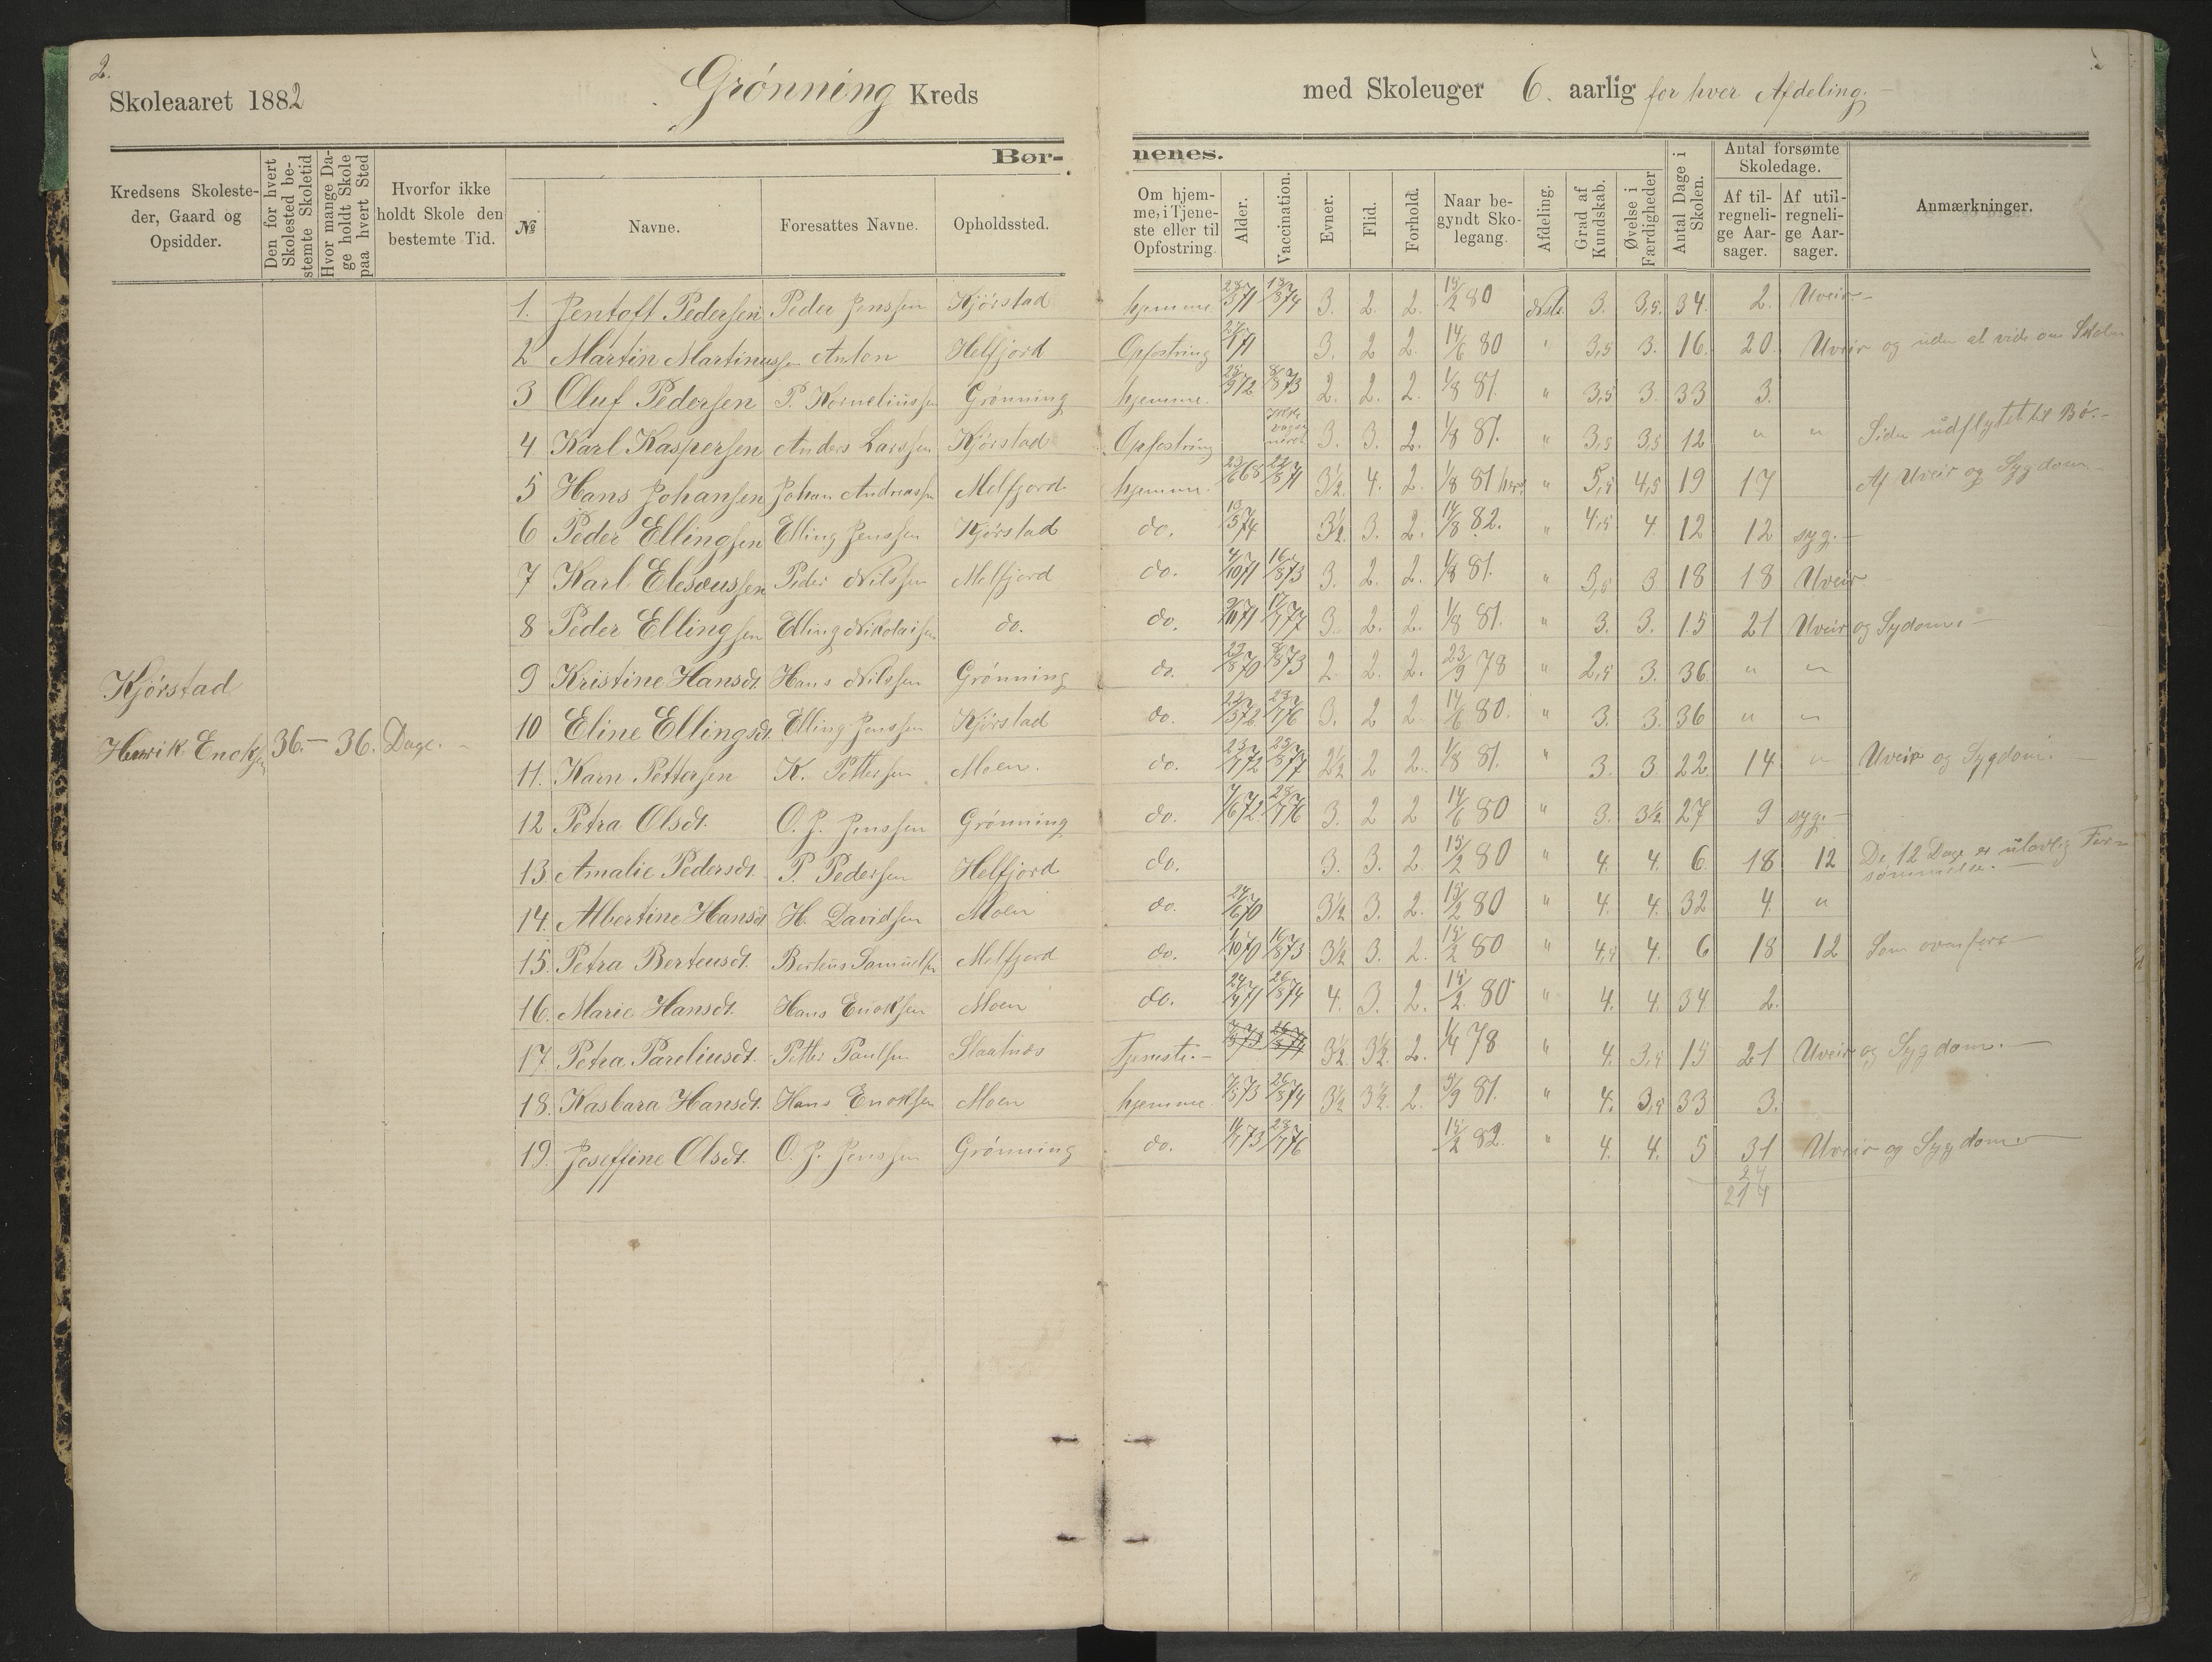 2.
Skoleaaret 1882 Grønning Kreds med Skoleuger 6. aarlig for hver Afdeling.
Børnenes.
Kredsens Skolesteder, Gaard og Opsidder.
Den for hvert Skolested bestemte Skoletid
Hvor mange Dage holdt Skole paa hvert Sted
Hvorfor ikke holdt Skole den bestemte Tid.
№
Navne.
Foresattes Navne.
Opholdssted.
Om hjemme, i Tjeneste eller til Opfostring.
Alder.
Vaccination.
Evner.
Flid.
Forhold.
Naar begyndt Skolegang.
Afdeling.
Grad af Kundskab.
Øvelse i Færdigheder
Antal Dage i Skolen.
Antal forsømte Skoledage.
Af tilregnelige Aarsager.
Af utilregnelige Aarsager.
Anmærkninger.
1. Jentoft Pedersen Peder Jenssen Kjørstad hjemme 3. 2. 2. 15/2 80 Nste. 3. 3,5. 34. 2. Uveir
2 Martin Martinussen Anton Helfjord Opfostring 3. 2 2. 14/6 80 " 3,5 3. 16. 20. Uveir og uden at vide om Skolen
3 Oluf Pedersen P. Korneliussen Grønning hjemme. 2. 2. 2. 1/8 81. " 3,5 3. 33 3.
4. Karl Kaspersen Anders Larssen Kjørstad Opfostring 3. 3. 2. 1/8 81. " 3,5 3,5 12 " " Siden udflyttet til Bø.
5 Hans Johansen Johan Andreassen Melfjord hjemme. 23/6 68 3½. 4. 2. 1/8 81 " 5,5 4,5 19 17 Af Uveir og Sygdom
6 Peder Ellingsen Elling Jenssen Kjørstad do. 3½. 3. 2. 14/8 82. " 4,5 4 12 12 syg.
7 Karl Elesæussen Peder Nilssen Melfjord do. 4/10 71 16/8 73 3. 2. 2. 1/8 81. " 3,5 3 18 18 Uveir
8 Peder Ellingsen Elling Nikolaisen do. do. 3. 2. 2. 1/8 81. " 3. 3. 15 21 Uveir og Sydom
9 Kristine Hansdt. Hans Nilssen Grønning do. 22/8 70 8/8 73 2. 2. 2. 23/9 78 " 2,5 3. 36 " "
Kjørstad
10 Eline Ellingsdt. Elling Jenssen Kjørstad do. 3. 2 2. 14/6 80. " 3. 3. 36 " "
Henrik Enoksen 36.— 36. Dage.
11. Karn Pettersen K. Pettersen Moen. do. 2½ 2 2. 1/8 81. " 3. 3. 22 14 " Uveir og Sygdom.
12 Petra Olsdt. O. J. Jenssen Grønning do. 3. 2 2 14/6 80 " 3. 3½ 27 9 syg.
13. Amalie Pedersdt. P. Pedersen Helfjord do. 3. 3. 2 15/2 80 " 4. 4. 6. 18 12 De 12 Dage er ulovlig Forsømmelse.
14. Albertine Hansdt. H. Davidsen Moen do. 24/6 70 3½ 3. 2. 15/2 80 " 4. 4. 32 4. "
15. Petra Berteusdt. Berteus Samuelsen Melfjord do. 1/10 70 16/8 73 3½ 3. 2. 15/2 80 " 4,5 4. 6 18 12 Som ovenfore
16. Marie Hansdt. Hans Enoksen Moen do. 24/4 71 26/8 74 4. 3. 2. 15/2 80 " 4. 4. 34 2.
17. Petra Pareliusdt. Petter Paulsen Slaatnes Tjeneste. 3½. 3½. 2. 1/4 78 " 4. 3,5 15 21 Uveir og Sygdom.
18. Kasbara Hansdt. Hans Enoksen Moen hjemme 7/5 73 26/8 74 3½ 3½. 2. 5/9 81. " 4. 3,5 33 3.
19. Joseffine Olsdt. O. J. Jenssen Grønning do. 15/2 82. " 4. 4. 5 31 Uveir og Sygdom
24
214